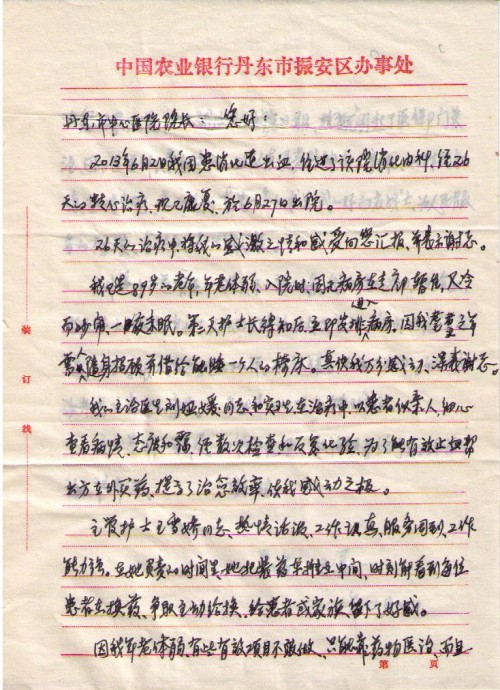 中国农业银行丹东市振安区办事处
丹东市中心医院院长: 您好:
2013年6月2日我因患消化道出血,住进了该院消化内科,经26
天的精心治疗,现已康复,於6月27日出院。
26天的治疗中,将我的感激之情和感受向您汇报,并表示谢意。
我已是89岁的老年,年老体弱,入院时,因无病房在走廊暂住,又冷
而吵闹,一夜未眠。第二天护士长得知后,立即安排进入病房,因我
需随身并借给能睡一个人的床。真使我万分感动,深表谢意。
我的主治医生刘媛同志和实习生,在治疗中,以患者似亲人,细心
查看病情,态度和蔼,经数次检查和反复化验,为了能有效止血帮
出方在外买药,提高了治愈效率,使我感动之极。
主管护士王雪娇同志,热情活泼,工作认真,服务周到,工作
能力强。在她负责的时间里,她把装药车推在中间,时刻能看到每位
患者在换药,争取主动给换,给患者或家族留下了好感。
因我年老体弱,有些有效项目不敢做,只能靠药物医治,而且
装
订
线
第 页